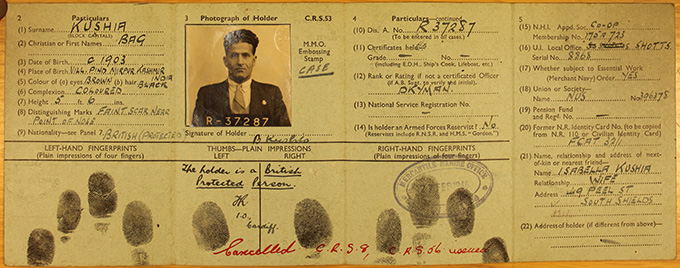 2 Particulars
(1) Surname KUSHIA
(BLOCK CAPITALS)
(2) Christian or First Names BAG
(3) Date of Birth c 1903
(4) Place of Birth VILL. PIND MIRPUR KASHMIR
INDIA
(5) Colour of (a) eyes BROWN (b) hair BLACK
(6) Complexion COLOURED
(7) Height 5 ft. 6 ins.
(8) Distinguishing Marks FAINT SCAR NEAR
POINT OF NOSE
(9) Nationality—see Panel 7 BRITISH (PROTECTED)
3 Photograph of Holder C.R.S.53
M.M.O.
Embossing
Stamp
CASE
R-37287
Signature of Holder B Kushia
4 Particulars—continued
(10) Dis. A. No. R 37287
(To be entered in all cases.)
(11) Certificates held
Grade
(including E.D.H., Ship's Cook, Lifeboat, etc.)
(12) Rank or Rating if not a certificated Officer
(if A.B. Supt. to verify and initial).
DKYMAN.
(13) National Service Registration No.
(14) Is holder an Armed Forces Reservist? No
(Reservists include R.N.S.R. and H.M.S. "Gordon.")
5
(15) N.H.I. Appd. Soc. CO-OP
Membership No.
(16) U.I. Local Office S. SHOTTS.
Serial No.
(17) Whether subject to Essential Work
(Merchant Navy) Order YES
(18) Union or Society—
Name NUS No.
(19) Pension Fund
and Regd. No.
(20) Former N.R. Identity Card No. (to be copied
from N.R. 110 or Civilian Identity Card)
(21) Name, relationship and address of next-
of-kin or nearest friend—
Name ISABELLA KUSHIA
Relationship WIFE
Address 49 PEEL ST
SOUTH SHIELDS
(22) Address of holder (if different from above)—
LEFT-HAND FINGERPRINTS
(Plain impressions of four fingers)
THUMBS—PLAIN IMPRESSIONS
LEFT RIGHT
RIGHT-HAND FINGERPRINTS
(Plain impressions of four fingers)
The holder is a British
Protected Person.
I.O.
Cardiff.
MERCANTILE MARINE OFFICE
Cancelled C.R.S.9, C.R.S.56 issued